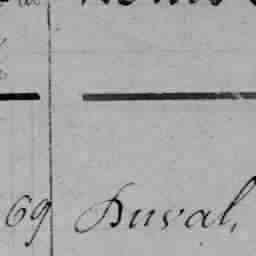 69 Duval,